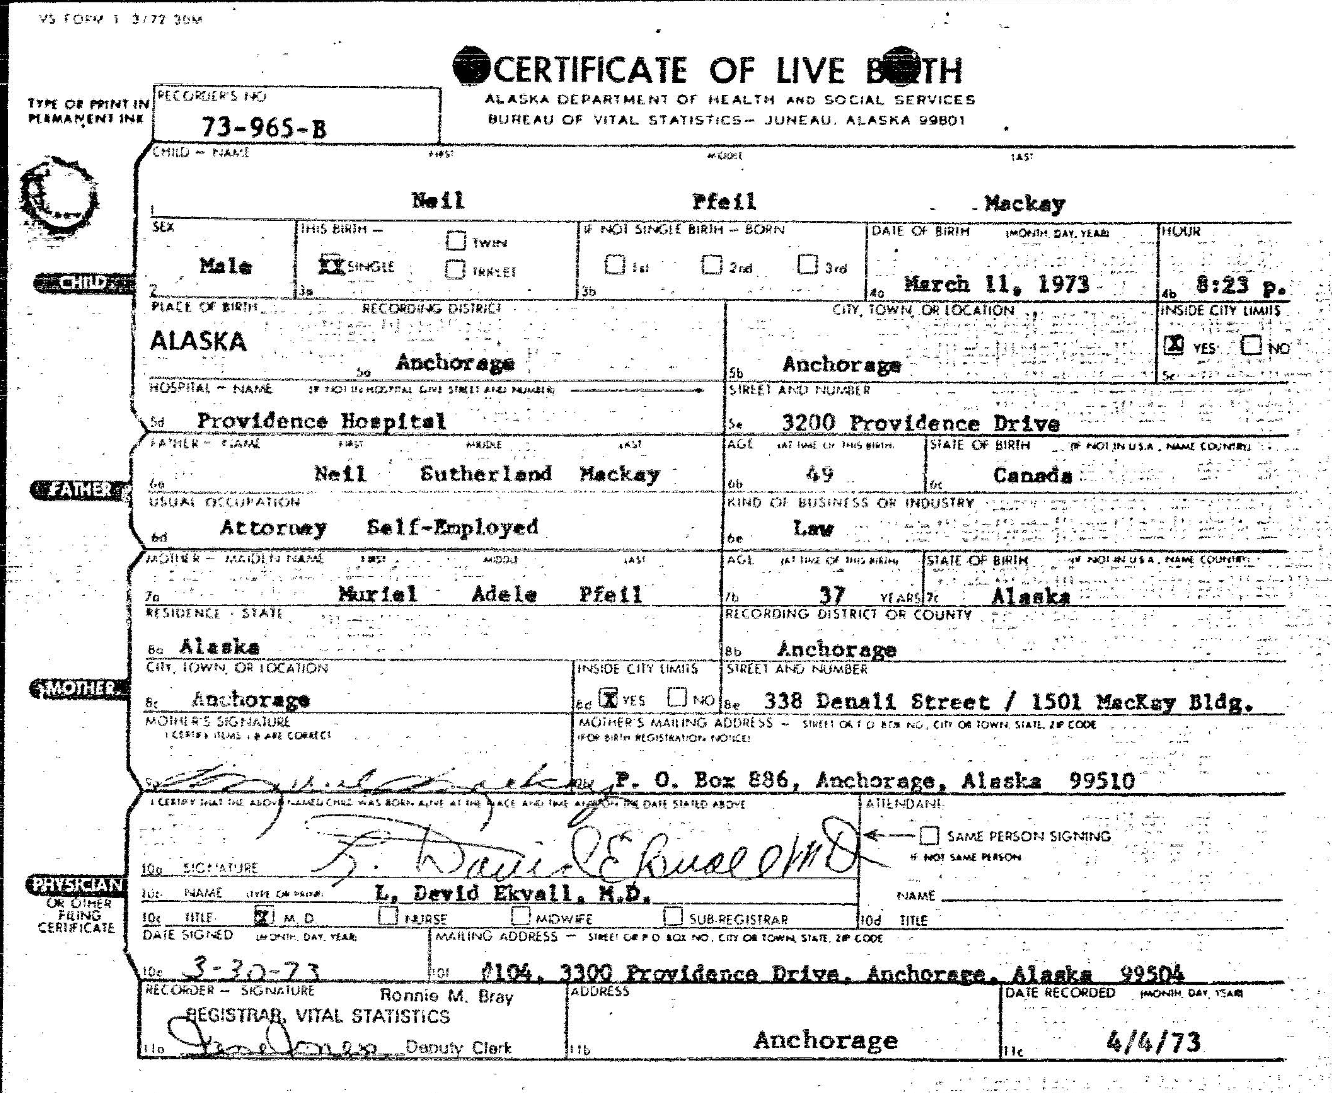 VS FORM 1 3/72 30M
CERTIFICATE OF LIVE BIRTH
ALASKA DEPARTMENT OF HEALTH AND SOCIAL SERVICES
BUREAU OF VITAL STATISTICS— JUNEAU, ALASKA 99801
TYPE OR PRINT IN PERMANENT INK
RECORDER'S NO
73-965-B
CHILD — NAME FIRST MIDDLE LAST
1 Neil Pfeil Mackay
SEX THIS BIRTH — IF NOT SINGLE BIRTH — BORN DATE OF BIRTH (MONTH, DAY, YEAR) HOUR
TWIN
2 Male 3a XX SINGLE TRIPLET 3b 1st 2nd 3rd 4a March 11, 1973 4b 8:23 p.
CHILD
PLACE OF BIRTH RECORDING DISTRICT CITY, TOWN, OR LOCATION INSIDE CITY LIMITS
ALASKA
5a Anchorage 5b Anchorage 5c X YES NO
HOSPITAL — NAME (IF NOT IN HOSPITAL GIVE STREET AND NUMBER) STREET AND NUMBER
5d Providence Hospital 5e 3200 Providence Drive
FATHER — NAME FIRST MIDDLE LAST AGE (AT TIME OF THIS BIRTH) STATE OF BIRTH (IF NOT IN U.S.A., NAME COUNTRY)
6a Neil Sutherland Mackay 6b 49 6c Canada
FATHER
USUAL OCCUPATION KIND OF BUSINESS OR INDUSTRY
6d Attorney Self-Employed 6e Law
MOTHER — MAIDEN NAME FIRST MIDDLE LAST AGE (AT TIME OF THIS BIRTH) STATE OF BIRTH (IF NOT IN U.S.A., NAME COUNTRY)
7a Muriel Adele Pfeil 7b 37 YEARS 7c Alaska
RESIDENCE - STATE RECORDING DISTRICT OR COUNTY
8a Alaska 8b Anchorage
CITY, TOWN, OR LOCATION INSIDE CITY LIMITS STREET AND NUMBER
MOTHER
8c Anchorage 8d X YES NO 8e 338 Denali Street / 1501 MacKay Bldg.
MOTHER'S SIGNATURE MOTHER'S MAILING ADDRESS — STREET OR P O BOX NO, CITY OR TOWN, STATE, ZIP CODE
I CERTIFY ITEMS 1-8 ARE CORRECT (FOR BIRTH REGISTRATION NOTICE)
9a Muriel Mackay 9b P. O. Box 886, Anchorage, Alaska 99510
I CERTIFY THAT THE ABOVE NAMED CHILD WAS BORN ALIVE AT THE PLACE AND TIME AND ON THE DATE STATED ABOVE ATTENDANT
SAME PERSON SIGNING
IF NOT SAME PERSON
10a SIGNATURE L. David Ekvall MD
PHYSICIAN
OR OTHER
FILING
CERTIFICATE
10b NAME (TYPE OR PRINT) L. David Ekvall, M.D. NAME
10c TITLE X M.D. NURSE MIDWIFE SUB-REGISTRAR 10d TITLE
DATE SIGNED (MONTH, DAY, YEAR) MAILING ADDRESS — STREET OR P O BOX NO, CITY OR TOWN, STATE, ZIP CODE
10e 3-30-73 10f #104, 3300 Providence Drive, Anchorage, Alaska 99504
RECORDER — SIGNATURE Ronnie M. Bray ADDRESS DATE RECORDED (MONTH, DAY, YEAR)
REGISTRAR, VITAL STATISTICS
11a Jones Deputy Clerk 11b Anchorage 11c 4/4/73